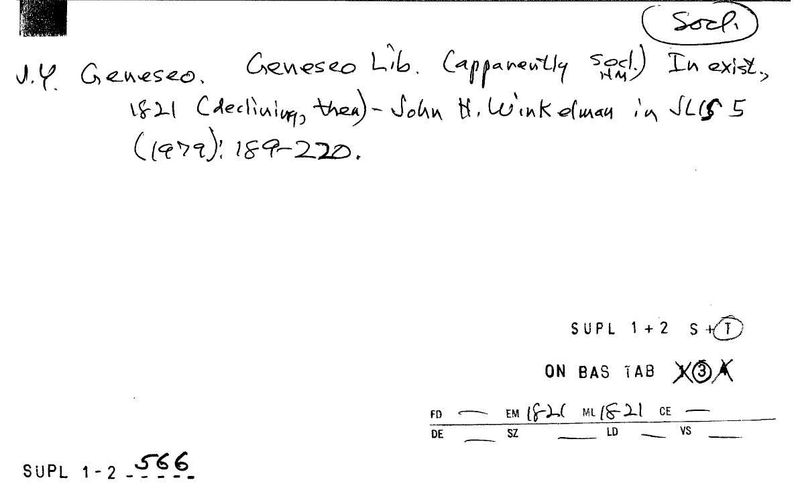 Socl.
N.Y. Geneseo. Geneseo Lib. (apparently Socl.) In exist.,
HM
1821 (declining, then) - John H. Winkelman in JLIS 5
(1979): 189-220.
SUPL 1+2 S+T
ON BAS TAB 1 3 4
FD — EM 1821 ML 1821 CE —
DE __ SZ __ LD __ VS __
SUPL 1-2 566